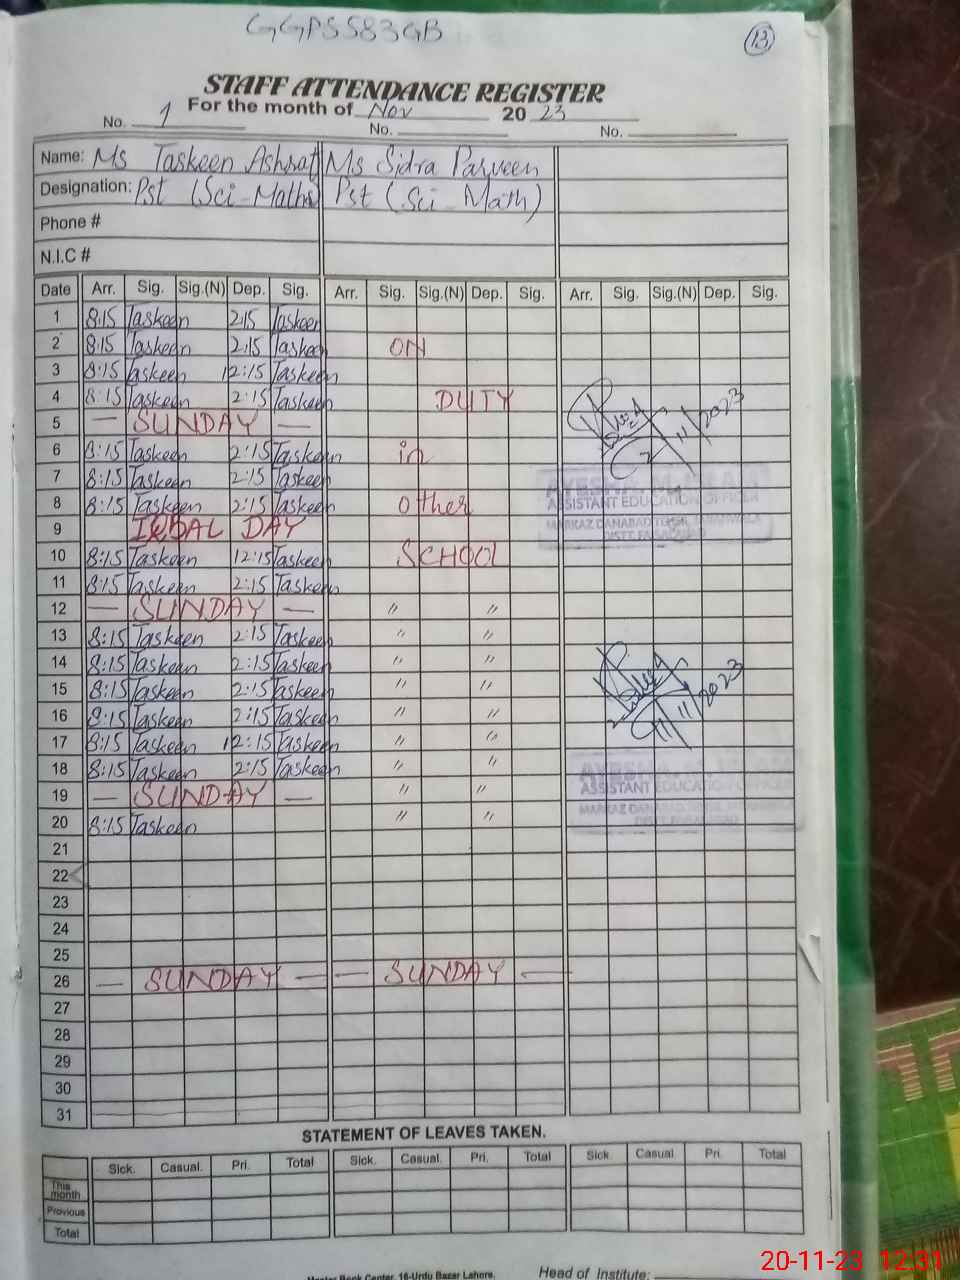 GGPS 583GB
13
STAFF ATTENDANCE REGISTER
For the month of Nov 20 23
No. 1 No. No.
Name: Ms Taskeen Ashraf Ms Sidra Parveen
Designation: Pst (Sci-Math) Pst (Sci-Math)
Phone #
N.I.C #
Date Arr. Sig. Sig.(N) Dep. Sig. Arr. Sig. Sig.(N) Dep. Sig. Arr. Sig. Sig.(N) Dep. Sig.
1 8:15 Taskeen 2:15 Taskeen
2 8:15 Taskeen 2:15 Taskeen ON
3 8:15 Taskeen 12:15 Taskeen
4 8:15 Taskeen 2:15 Taskeen DUTY
5 — SUNDAY —
6 8:15 Taskeen 2:15 Taskeen in
7 8:15 Taskeen 2:15 Taskeen
8 8:15 Taskeen 2:15 Taskeen Other
9 IQBAL DAY
10 8:15 Taskeen 12:15 Taskeen SCHOOL
11 8:15 Taskeen 2:15 Taskeen
12 — SUNDAY — " "
13 8:15 Taskeen 2:15 Taskeen " "
14 8:15 Taskeen 2:15 Taskeen " "
15 8:15 Taskeen 2:15 Taskeen " "
16 8:15 Taskeen 2:15 Taskeen " "
17 8:15 Taskeen 12:15 Taskeen " "
18 8:15 Taskeen 2:15 Taskeen " "
19 — SUNDAY — " "
20 8:15 Taskeen " "
21
22
23
24
25
26 — SUNDAY — — SUNDAY —
27
28
29
30
31
11/2023
ASSISTANT EDUCATION OFFICER
11/2023
ASSISTANT EDUCATION OFFICER
STATEMENT OF LEAVES TAKEN.
Sick. Casual. Pri. Total Sick. Casual. Pri. Total Sick. Casual Pri. Total
This month
Provious
Total
Master Book Center, 16-Urdu Bazar Lahore. Head of Institute:
20-11-23 12:31